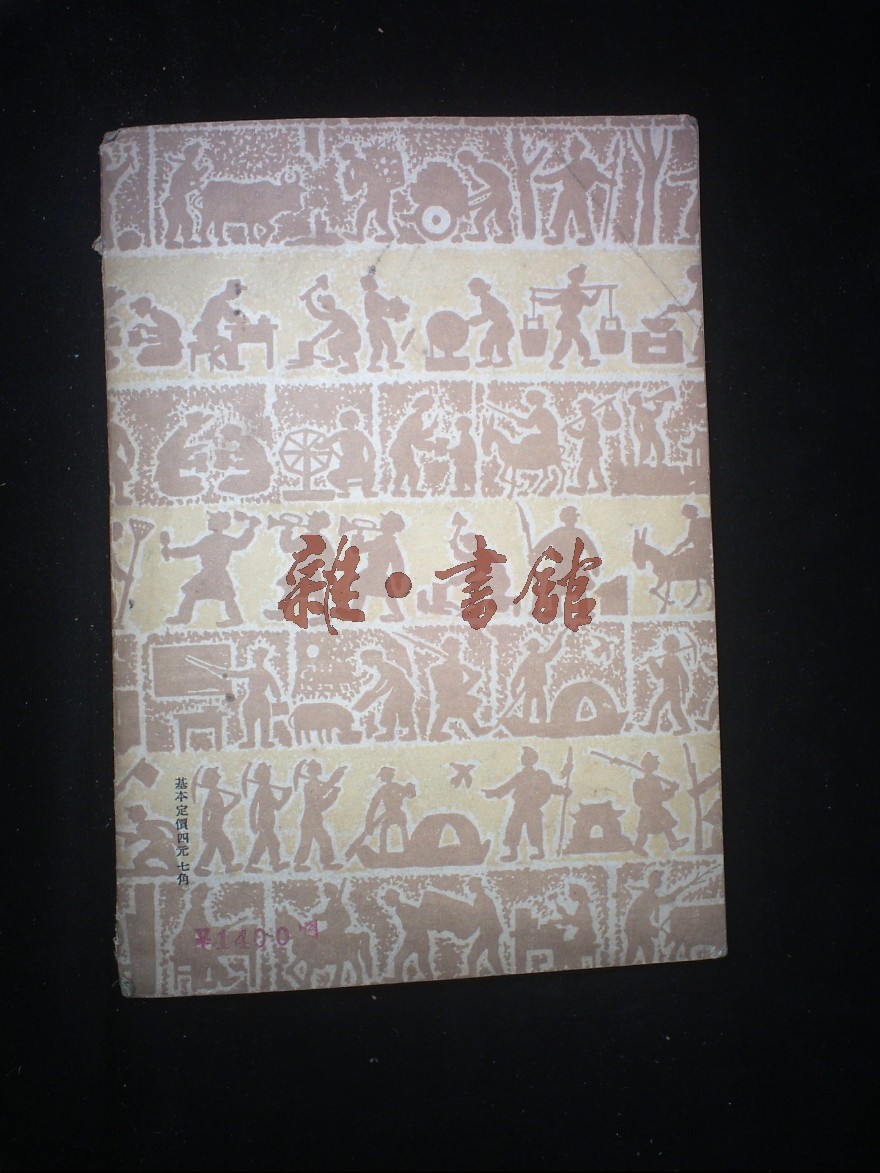 雜·書館
基本定價四元七角
1400